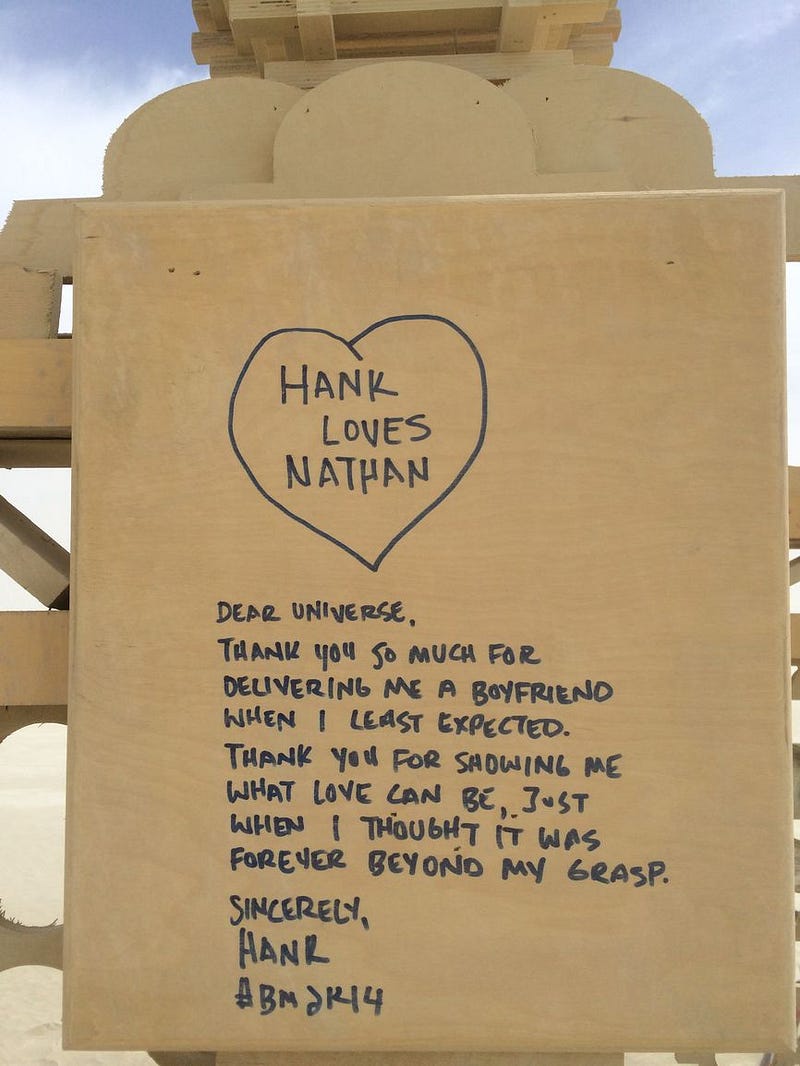 HANK
LOVES
NATHAN
DEAR UNIVERSE,
THANK YOU SO MUCH FOR
DELIVERING ME A BOYFRIEND
WHEN I LEAST EXPECTED.
THANK YOU FOR SHOWING ME
WHAT LOVE CAN BE, JUST
WHEN I THOUGHT IT WAS
FOREVER BEYOND MY GRASP.
SINCERELY,
HANK
#BM2K14